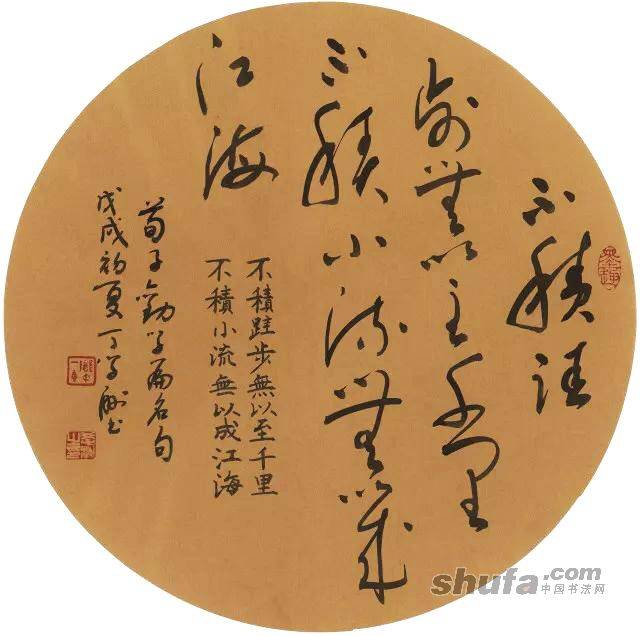 不積跬
步無以至千里
不積小流無以成
江海
不積跬步無以至千里
不積小流無以成江海
荀子勸学篇名句
戊戌初夏丁书
shufa.com
中国书法网